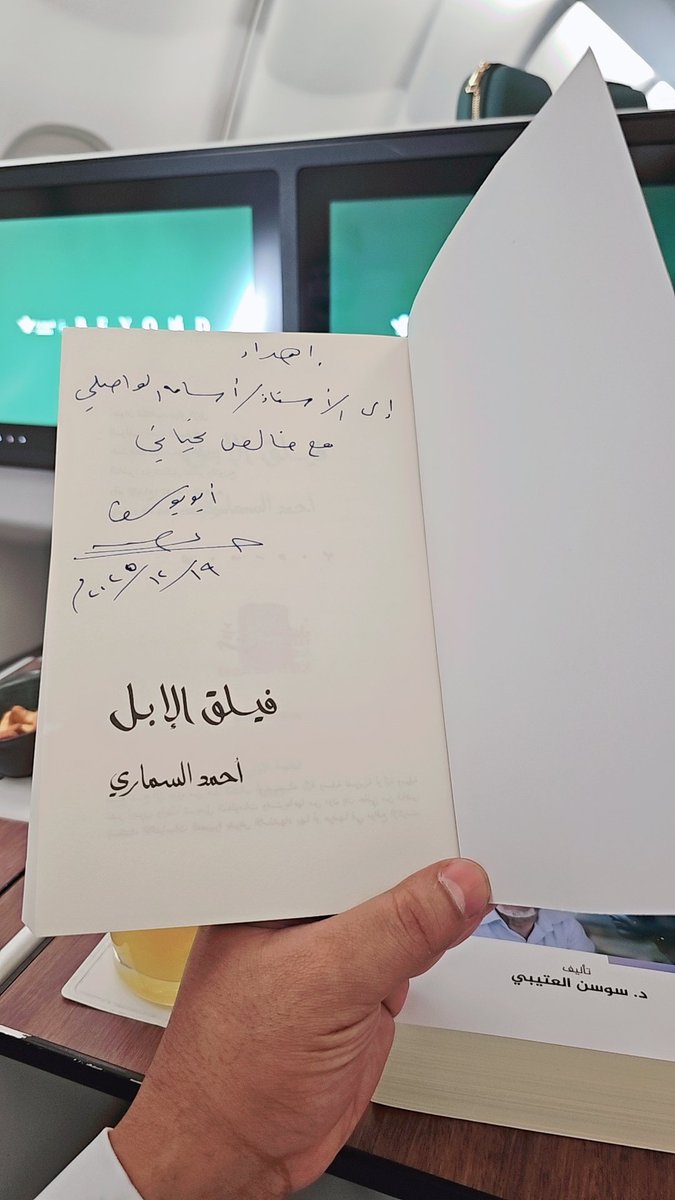 BEYOND
اهداء
إلى الأستاذ/ أسامة الواصلي
مع خالص تحياتي
أبو يوسف
٢٠٢٥/١٢/١٩م
فيلق الإبل
أحمد السماري
تأليف
د. سوسن العتيبي